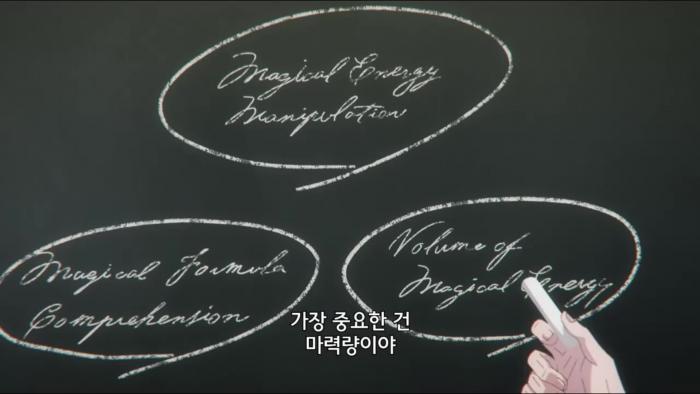 Magical Energy
Manipulation
Magical Formula
Comprehension
Volume of
Magical Energy
가장 중요한 건
마력량이야